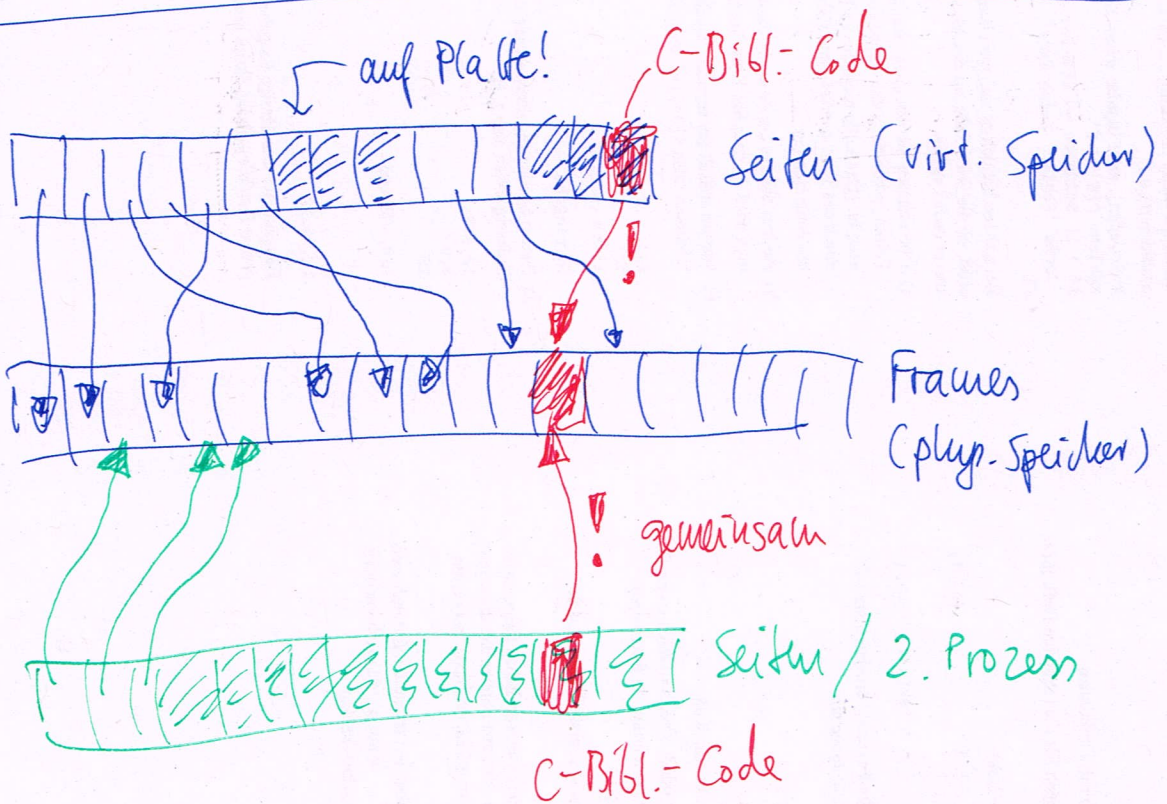 auf Platte!
C-Bibl.-Code
Seiten (virt. Speicher)
!
Frames
(phys. Speicher)
!
gemeinsam
Seiten / 2. Prozess
C-Bibl.-Code